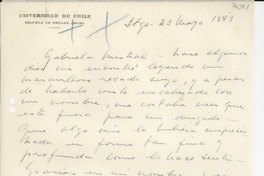 UNIVERSIDAD DE CHILE
ESCUELA DE BELLAS ARTES
Stgo. 22 Mayo 1943
Gabriela Mistral - hace algunos
días me encontré leyendo un
maravilloso recado suyo, y a pesar
de haberlo visto encabezado con
mi nombre, me costaba creer que
este fuera para mi dibujado -
Que algo mío la hubiera impresio
nado en forma tan fina y
profunda como lo había sentido.
Gracias en mi nombre